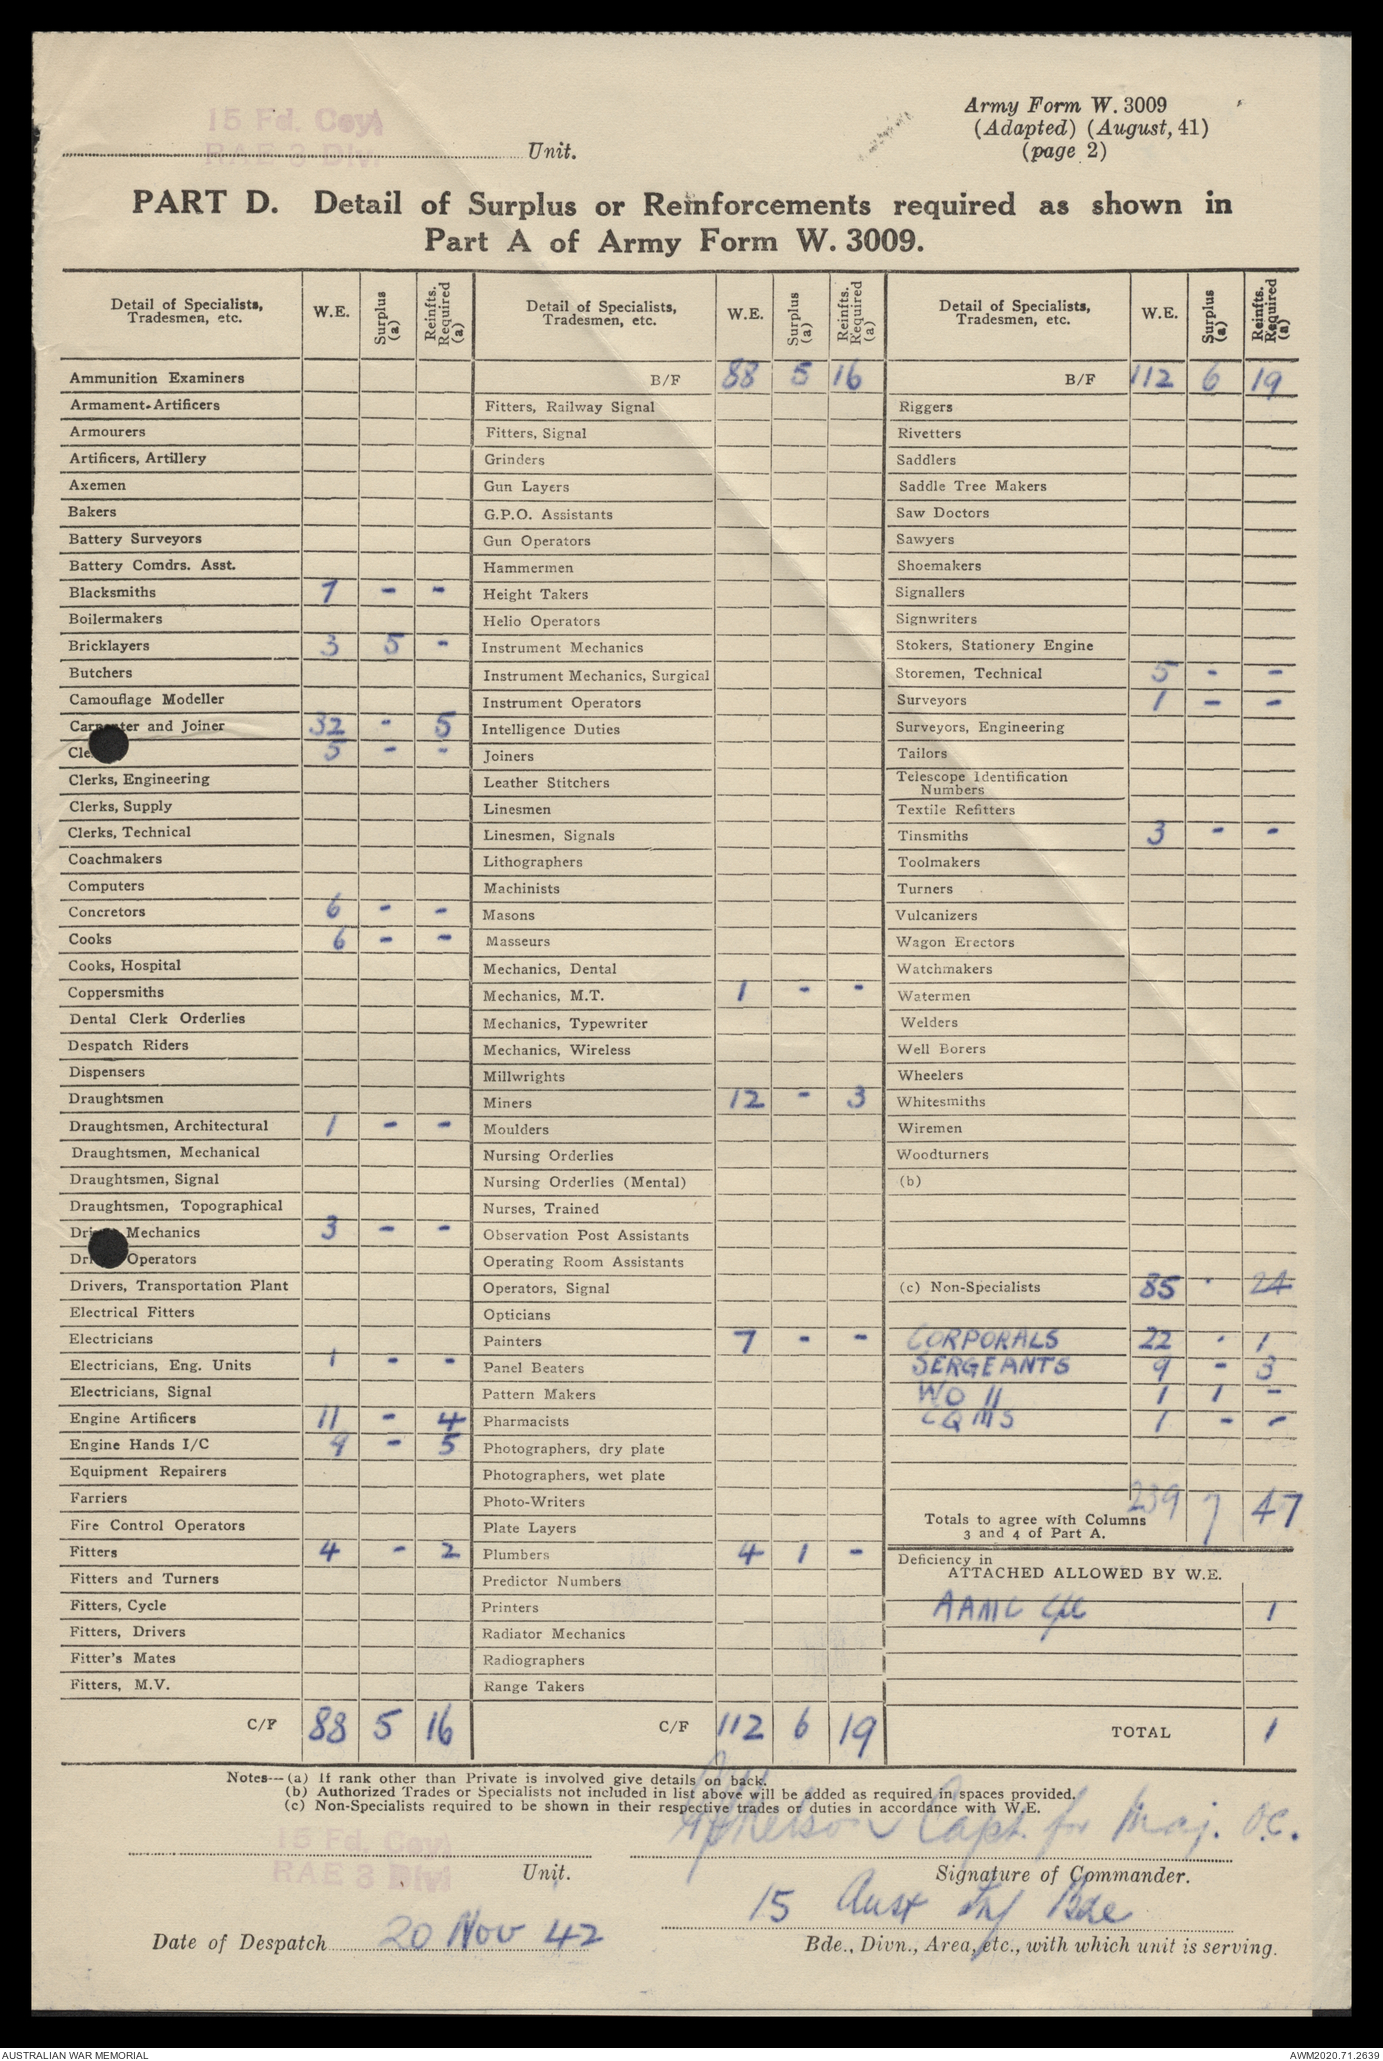 15 Fd. Coy
RAE 3 Div.
Unit.
Army Form W. 3009
(Adapted) (August, 41)
(page 2)
PART D. Detail of Surplus or Reinforcements required as shown in
Part A of Army Form W. 3009.
Detail of Specialists, Tradesmen, etc. W.E. Surplus (a) Reinfts. Required (a)
Ammunition Examiners
Armament Artificers
Armourers
Artificers, Artillery
Axemen
Bakers
Battery Surveyors
Battery Comdrs. Asst.
Blacksmiths 7 - -
Boilermakers
Bricklayers 3 5 -
Butchers
Camouflage Modeller
Carpenter and Joiner 32 - 5
Cle 5 - -
Clerks, Engineering
Clerks, Supply
Clerks, Technical
Coachmakers
Computers
Concretors 6 - -
Cooks 6 - -
Cooks, Hospital
Coppersmiths
Dental Clerk Orderlies
Despatch Riders
Dispensers
Draughtsmen
Draughtsmen, Architectural 1 - -
Draughtsmen, Mechanical
Draughtsmen, Signal
Draughtsmen, Topographical
Dri Mechanics 3 - -
Dri Operators
Drivers, Transportation Plant
Electrical Fitters
Electricians
Electricians, Eng. Units 1 - -
Electricians, Signal
Engine Artificers 11 - 4
Engine Hands I/C 9 - 5
Equipment Repairers
Farriers
Fire Control Operators
Fitters 4 - 2
Fitters and Turners
Fitters, Cycle
Fitters, Drivers
Fitter's Mates
Fitters, M.V.
C/F 88 5 16
Detail of Specialists, Tradesmen, etc. W.E. Surplus (a) Reinfts. Required (a)
B/F 88 5 16
Fitters, Railway Signal
Fitters, Signal
Grinders
Gun Layers
G.P.O. Assistants
Gun Operators
Hammermen
Height Takers
Helio Operators
Instrument Mechanics
Instrument Mechanics, Surgical
Instrument Operators
Intelligence Duties
Joiners
Leather Stitchers
Linesmen
Linesmen, Signals
Lithographers
Machinists
Masons
Masseurs
Mechanics, Dental
Mechanics, M.T. 1 - -
Mechanics, Typewriter
Mechanics, Wireless
Millwrights
Miners 12 - 3
Moulders
Nursing Orderlies
Nursing Orderlies (Mental)
Nurses, Trained
Observation Post Assistants
Operating Room Assistants
Operators, Signal
Opticians
Painters 7 - -
Panel Beaters
Pattern Makers
Pharmacists
Photographers, dry plate
Photographers, wet plate
Photo-Writers
Plate Layers
Plumbers 4 1 -
Predictor Numbers
Printers
Radiator Mechanics
Radiographers
Range Takers
C/F 112 6 19
Detail of Specialists, Tradesmen, etc. W.E. Surplus (a) Reinfts. Required (a)
B/F 112 6 19
Riggers
Rivetters
Saddlers
Saddle Tree Makers
Saw Doctors
Sawyers
Shoemakers
Signallers
Signwriters
Stokers, Stationery Engine
Storemen, Technical 5 - -
Surveyors 1 - -
Surveyors, Engineering
Tailors
Telescope Identification
Numbers
Textile Refitters
Tinsmiths 3 - -
Toolmakers
Turners
Vulcanizers
Wagon Erectors
Watchmakers
Watermen
Welders
Well Borers
Wheelers
Whitesmiths
Wiremen
Woodturners
(b)
(c) Non-Specialists 85 - 24
CORPORALS 22 - 1
SERGEANTS 9 - 3
WO II 1 1 -
CQMS 1 - -
Totals to agree with Columns
3 and 4 of Part A. 239 7 47
Deficiency in
ATTACHED ALLOWED BY W.E.
AAMC Cpl 1
TOTAL 1
Notes—(a) If rank other than Private is involved give details on back.
(b) Authorized Trades or Specialists not included in list above will be added as required in spaces provided.
(c) Non-Specialists required to be shown in their respective trades or duties in accordance with W.E.
15 Fd. Coy
RAE 3 Div
Unit.
Nelson Capt. for Maj. O.C.
Signature of Commander.
15 Aust Inf Bde
Date of Despatch 20 Nov 42
Bde., Divn., Area, etc., with which unit is serving.
AUSTRALIAN WAR MEMORIAL
AWM2020.71.2639